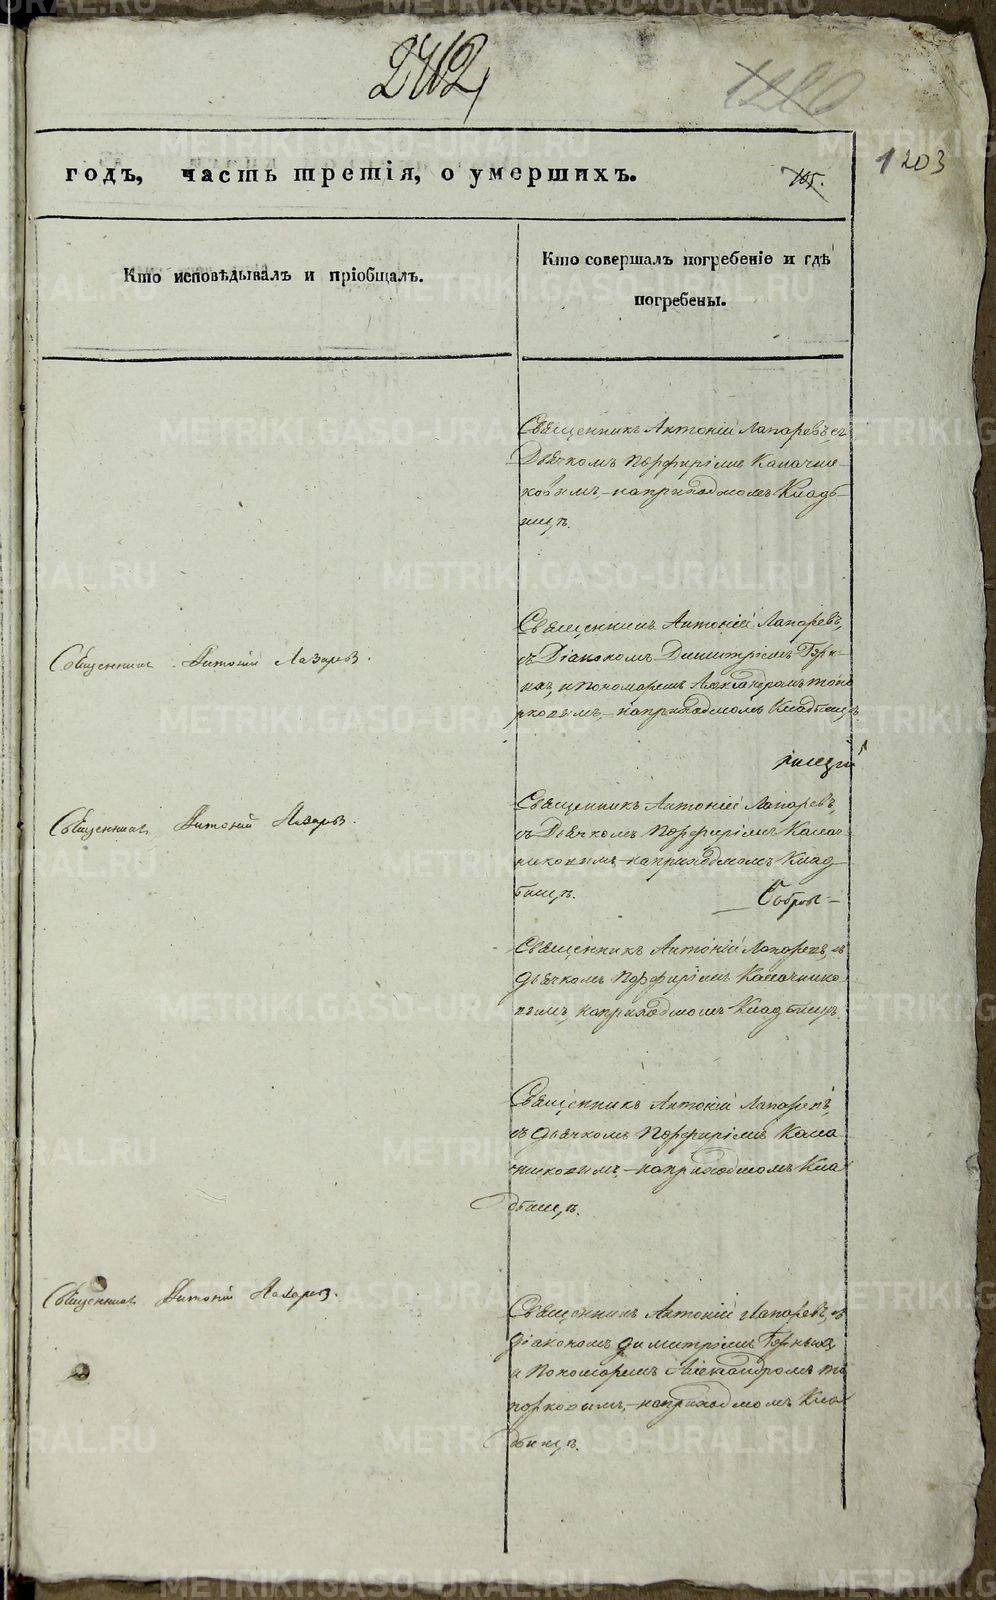 2412
1203
годъ, часть третія, о умершихъ.
105.
Кто исповѣдывалъ и пріобщалъ.
Кто совершалъ погребеніе и гдѣ
погребены.
Священникъ Антоній Лазаревъ, съ
Дьячкомъ Порфиріемъ Калачни-
ковымъ, на приходмомъ Кладб-
ищѣ.
Священникъ Антоній Лазаревъ.
Священникъ Антоній Лазаревъ,
съ Діакономъ Димитріемъ Горн-
ыхъ, и Пономаремъ Александромъ Топо
рковымъ, на приходмомъ Кладбищѣ
Священникъ Антоній Лазаревъ.
Священникъ Антоній Лазаревъ,
съ Дьячкомъ Порфиріемъ Калач-
никовымъ, на приходмомъ Клад
бищѣ.
Священникъ Антоній Лазаревъ, съ
дьячкомъ Порфиріемъ Калачнико-
вымъ, на приходмомъ Кладбищѣ.
Священникъ Антоній Лазаревъ,
съ дьячкомъ Порфиріемъ Кала-
чниковымъ, на приходмомъ Кла
дбищѣ.
Священникъ Антоній Лазаревъ.
Священникъ Антоній Лазаревъ, съ
діакономъ Димитріемъ Горныхъ,
и Пономаремъ Александромъ То
порковымъ, на приходмомъ Кла
дбищѣ.
METRIKI.GASO-URAL.RU